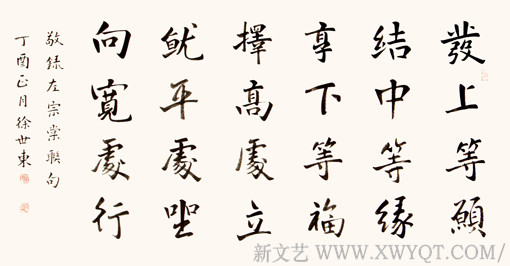 發上等願
結中等緣
享下等福
擇高處立
就平處坐
向寬處行
敬錄左宗棠聯句
丁酉正月徐世東
新文艺 WWW.XWYQT.COM/